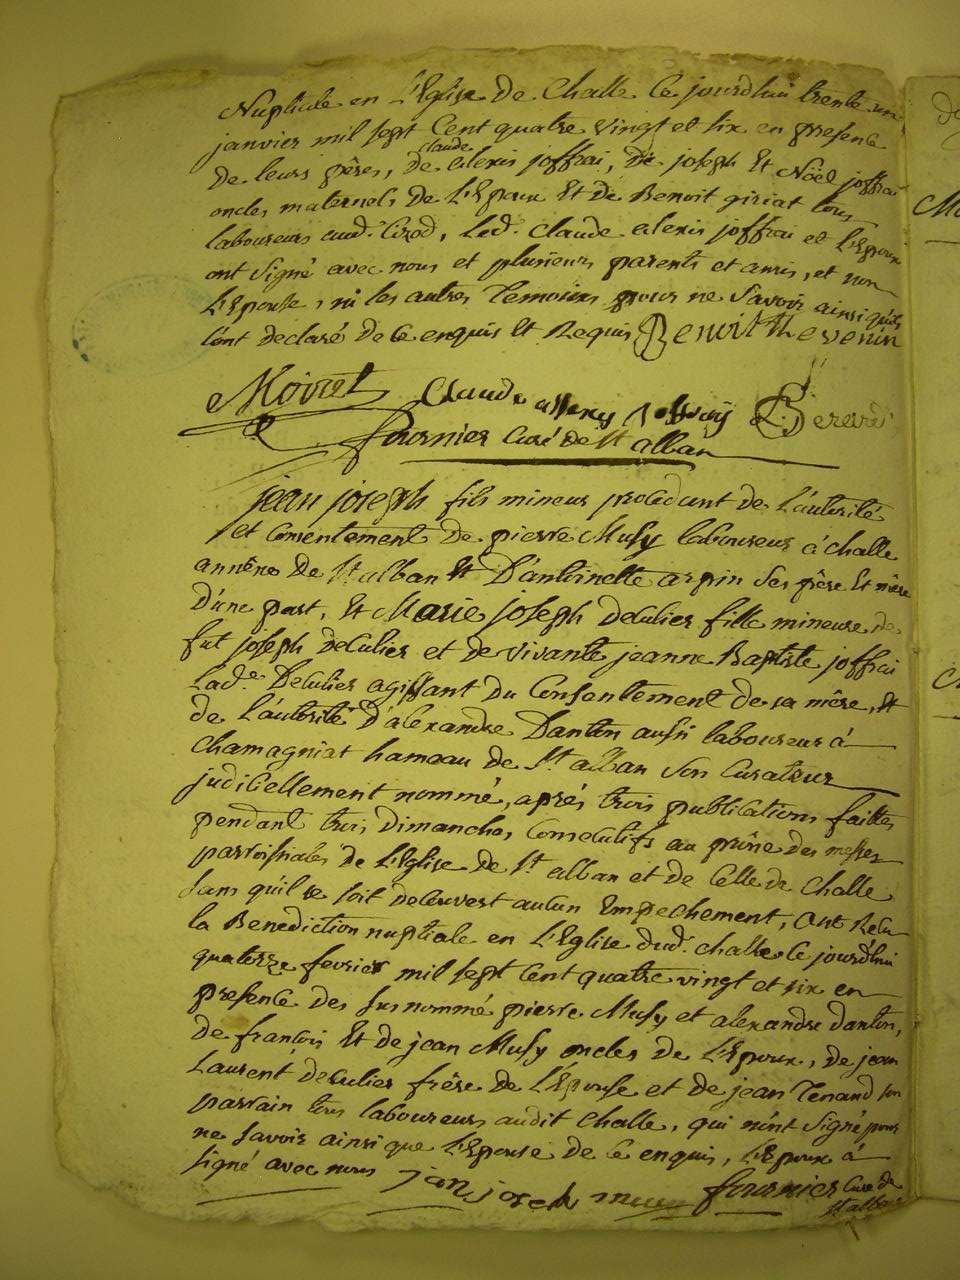 Nuptiale en L'Eglise de Challe ce jourd'hui trente un
janvier mil sept Cent quatre vingt et six en presence
de leurs pères, de claude alexis joffrai, de joseph Et Nöel joffrai
oncles maternels de L'Epoux Et de Benoit giriat tous
laboureurs aud.t Cized, led.t Claude alexis joffrai et L'Epoux
ont signé avec nous et plusieurs parents et amis, et non
L'Epouse, ni les autres Temoins pour ne Savoir ainsi qu'ils
L'ont declaré de ce enquis Et Requis Benoit thevenin
Moirel Claude allexy Joffray
fournier Curé de St alban
jean joseph fils mineur procedant de L'autorité
et Consentement de pierre Musy laboureur à challe
annêxe de St alban Et D'antoinette arpin Ses père Et mère
D'une part, Et Marie joseph deCulier fille mineure de
fut joseph deCulier et de vivante jeanne Baptiste joffrai
Lad.e DeCulier agissant du Consentement de sa mère, Et
de L'autorité D'alexandre Danton aussi laboureur à
Chamagniat hameau de St alban Son Curateur
judiciellement nommé, aprés trois publications faittes
pendant trois dimanches Consecutifs au prône des messes
parroissiales de L'Eglise de St alban et de Celle de Challe
Sans qu'il se soit decouvert aucun Empechement, ont Recu
la Benediction nuptiale en L'Eglise dud.t challe ce jourd'hui
quatorze fevrier mil sept Cent quatre vingt et six en
presence des Susnommé pierre Musy et alexandre danton,
de francois Et de jean Musy oncles de L'Epoux, de jean
Laurent deculier frère de L'Epouse et de jean Tenand son
parrain tous laboureurs audit Challe, qui n'ont Signé pour
ne Savoir ainsi que L'Epouse de ce enquis, L'Epoux à
signé avec nous jan joseh musy fournier Curé de
St alban